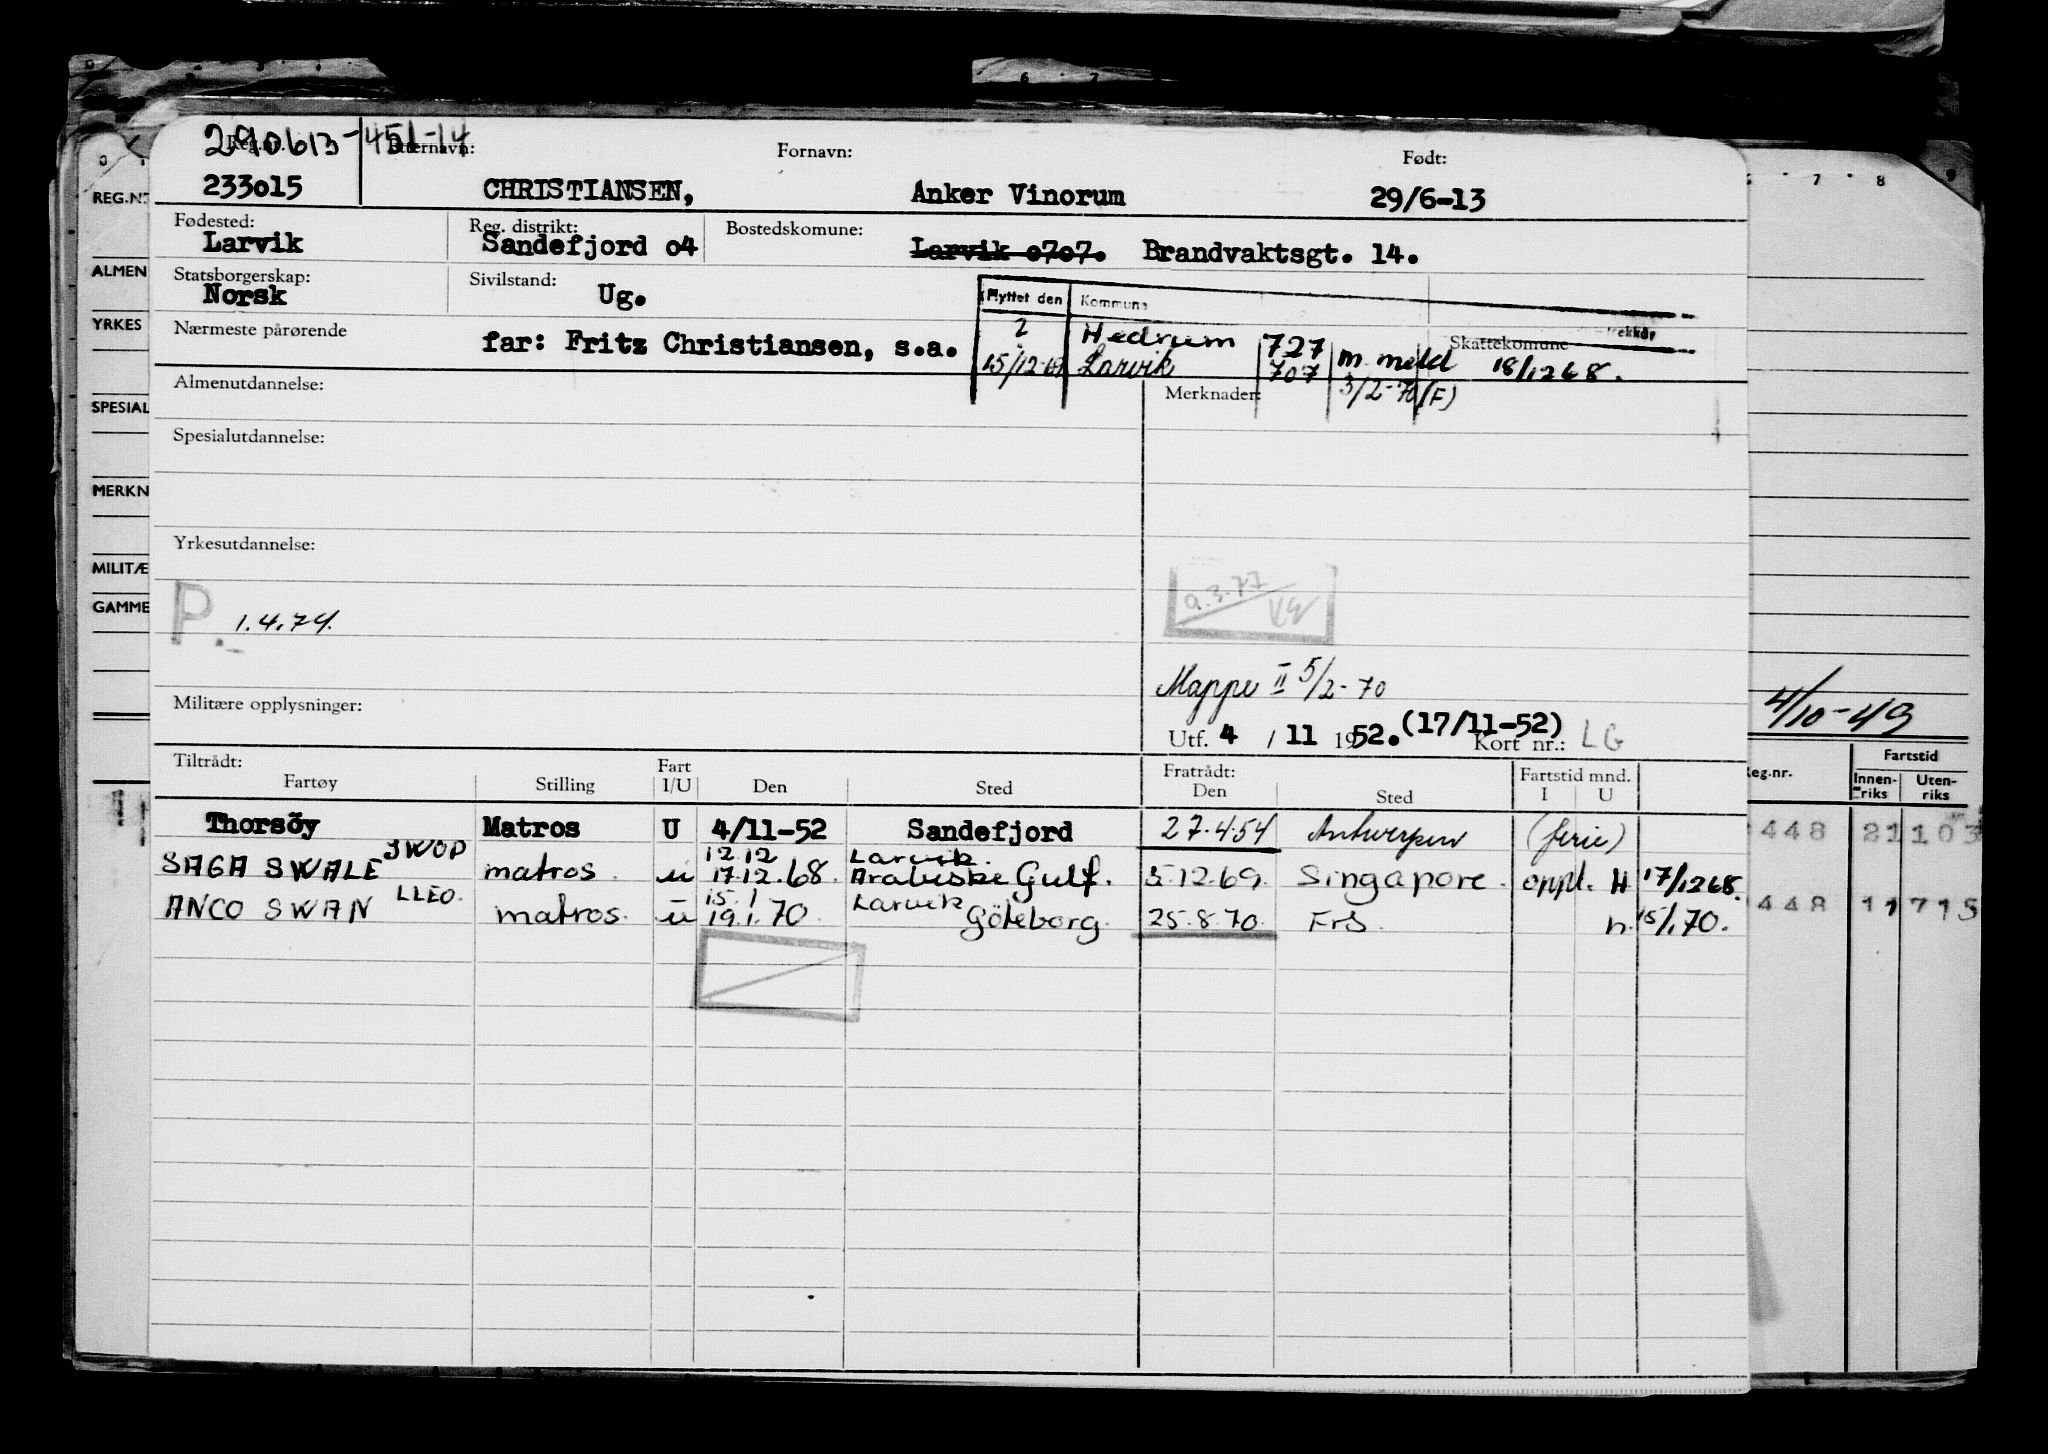 6 7
290613-451-14
Reg.nr. Etternavn: Fornavn: Født:
233015 CHRISTIANSEN, Anker Vinorum 29/6-13
Fødested: Reg. distrikt: Bostedskomune:
Larvik Sandefjord 04 Larvik 0707. Brandvaktsgt. 14.
Statsborgerskap: Sivilstand:
Norsk Ug.
Flyttet den Kommune
Nærmeste pårørende Skattekomune
far: Fritz Christiansen, s.a.
2 Hedrum 727
15/12-68 Larvik 707 m. meld 18/12 68.
3/2-70 (F)
Almenutdannelse: Merknader:
Spesialutdannelse:
Yrkesutdannelse:
P. 1.4.74.
9.3.77
Mappe II 5/2-70
Militære opplysninger:
Utf. 4 / 11 1952. (17/11-52) Kort nr.: LG
Tiltrådt: Fratrådt:
Fartøy Stilling Fart I/U Den Sted Den Sted Fartstid mnd. I U
Thorsöy Matros U 4/11-52 Sandefjord 27.4.54 Antwerpen (ferie)
JWOP 12.12 Larvik.
SAGA SWALE matros. u 17.12.68. Arabiske Gulf. 5.12.69. Singapore. oppl. H 17/12 68.
LLEO. 15.1 Larvik
ANCO SWAN matros. u 19.1.70 Göteborg. 25.8.70 FrS. h. 15/1.70.
REG.NR
ALMEN
YRKES
SPESIAL
MERKN
MILITÆ
GAMME
7 8 9
4/10-49
Reg.nr. Fartstid
Innen-riks Uten-riks
448 21 103
448 11 715